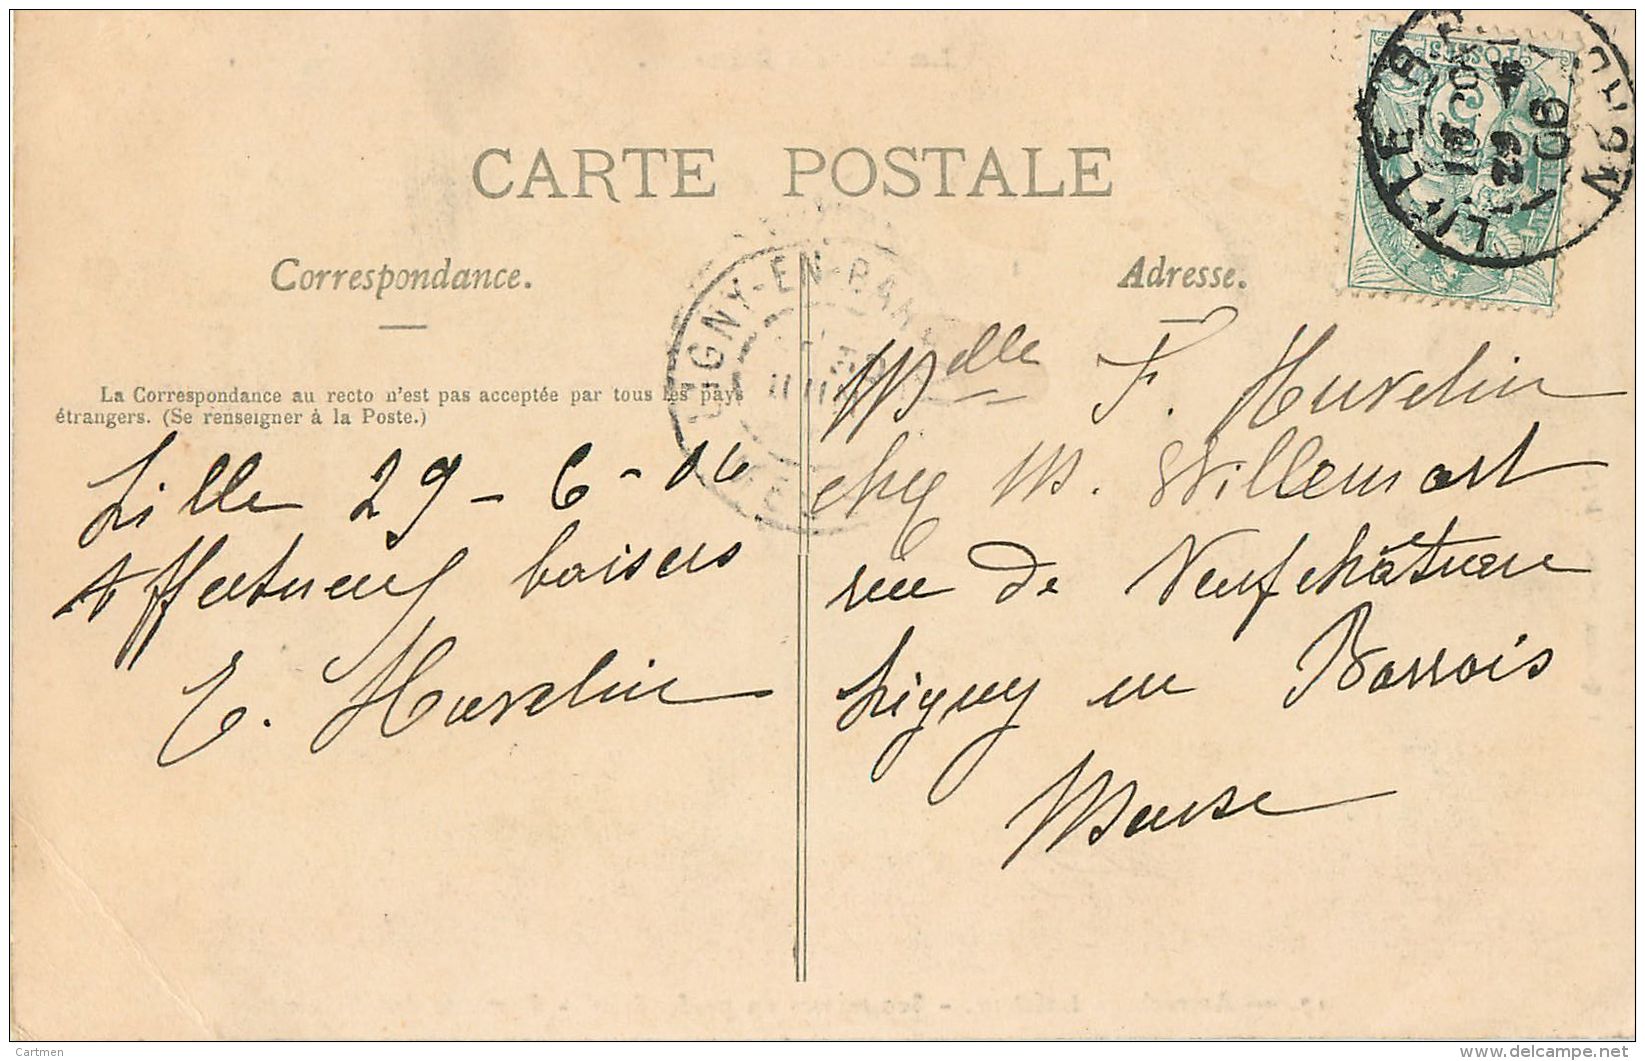 CARTE POSTALE
Correspondance.
La Correspondance au recto n'est pas acceptée par tous les pays
étrangers. (Se renseigner à la Poste.)
Lille 29-6-06
Affectueux baisers
E. Huvelin
Adresse.
Melle F. Huvelin
chez M. Willemart
rue de Neufchâteau
Ligny en Barrois
Meuse
LIGNY-EN-BARR
LILLE
29
06
POSTES
5
Cartmen
www.delcampe.net